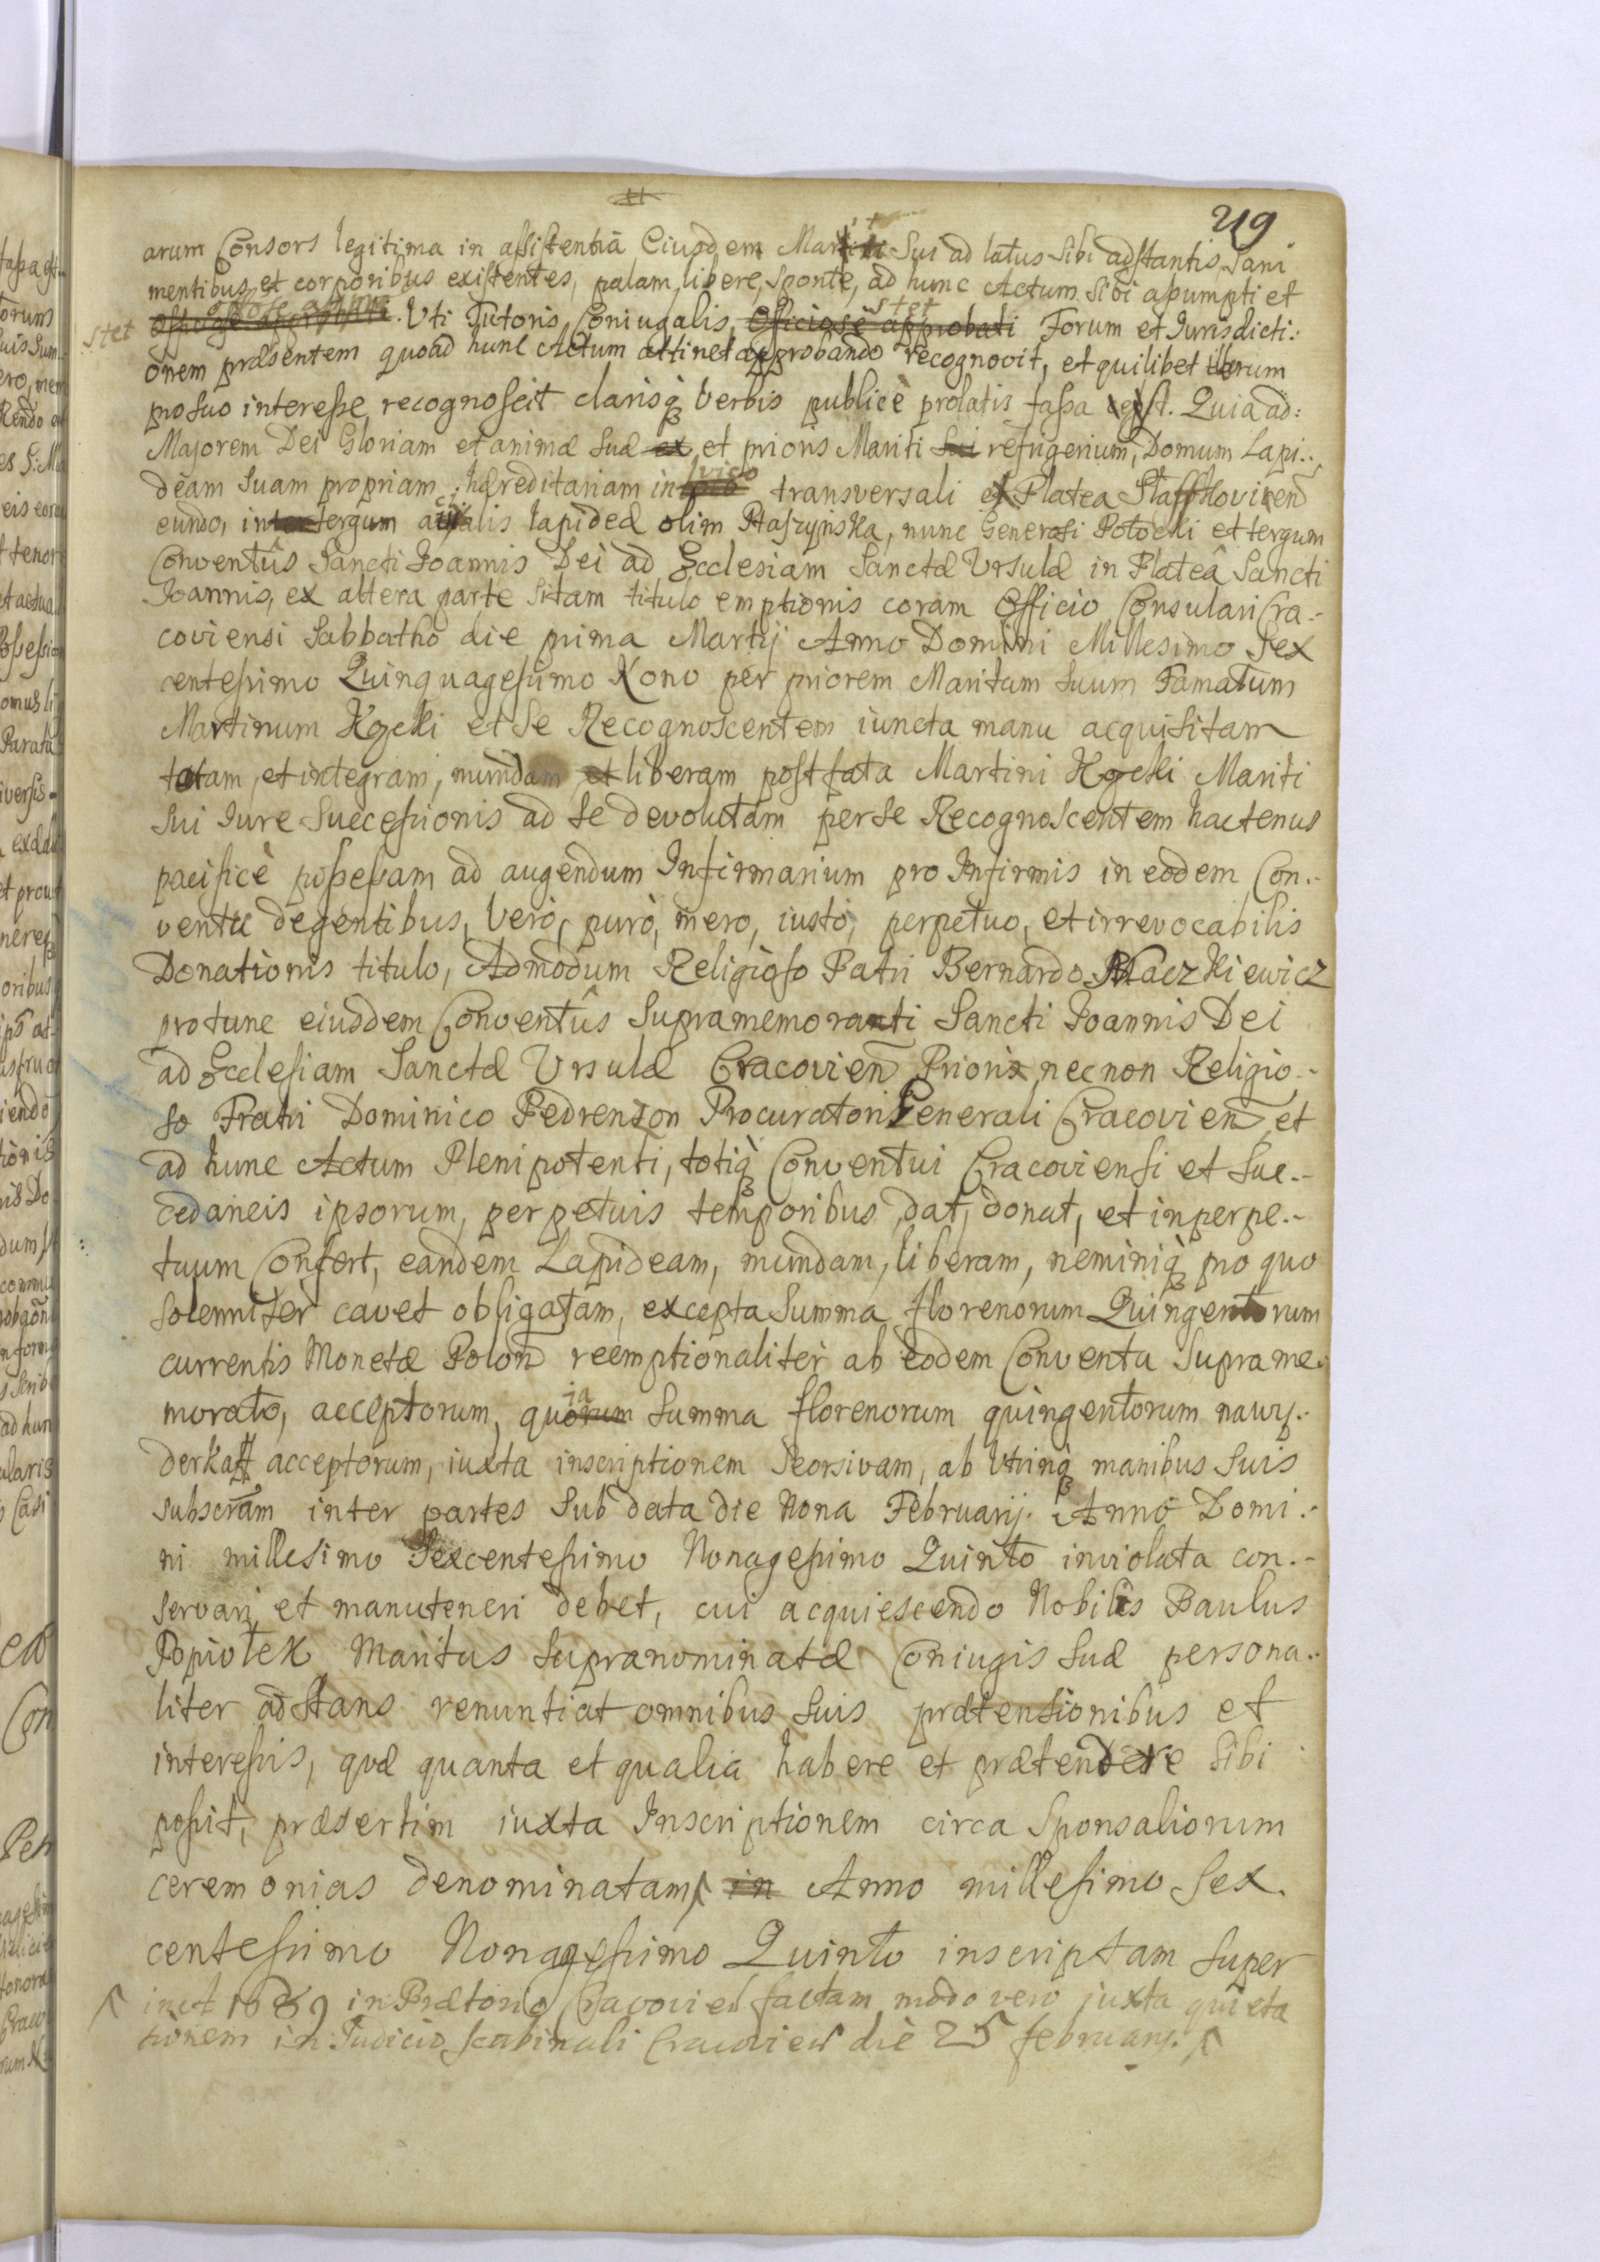 219
arum Consors legitima in assistentia Eiusdem Mariti Sui ad latus sibi adstantis, sani
mentibus, et corporibus existentes, palam, libere, sponte, ad hunc Actum sibi assumpti et
stet Uti Tutoris Coniugalis, Officiosè approbati stet Forum et Iurisdicti:
onem præsentem quoad hunc Actum attinet approbando recognovit, et quilibet illorum
pro suo interesse recognoscit clarisq verbis publicè prolatis fassa est. Quia ad:
Majorem Dei Gloriam et animæ suæ ex et prioris Mariti sui refrigerium, Domum Lapi..
deam suam propriam hæreditariam in vico transversali ex Platea Staffkovien
eundo, inter tergum lapideæ olim Ptaszyńska, nunc Generosi Potocki et tergum
Conventûs Sancti Joannis Dei ad Ecclesiam Sanctæ Ursulæ in Plateâ Sancti
Joannis, ex altera parte sitam titulo emptionis coram Officio Consulari Cra.-
coviensi Sabbatho die prima Martij Anno Domini Millesimo Sex
centesimo Quinquagesimo Nono per priorem Maritum suum Famatum
Martinum Kocki et se Recognoscentem iuncta manu acquisitam
totam, et integram, mundam et liberam post fata Martini Kocki Mariti
sui Iure Successionis ad se devolutam per se Recognoscentem hactenus
pacificè possessam ad augendum Infirmarium pro Infirmis in eodem Con.-
ventu degentibus, verò, purò, mero, iusto, perpetuo, et irrevocabilis
Donationis titulo, Admodum Religioso Patri Bernardo Kiewicz
pro tunc eiusdem Conventûs Supramemorati Sancti Joannis Dei
ad Ecclesiam Sanctæ Ursulæ Cracovien Prioris nec non Religio.-
so Fratri Dominico Pedrenzon Procuratori Generali Cracovien et
ad hunc Actum Plenipotenti, totiq Conventui Cracoviensi et Suc.-
cedaneis ipsorum, perpetuis temporibus dat, donat, et in perpe.-
tuum Confert, eandem Lapideam, mundam, liberam, neminiq pro quo
solenniter cavet obligatam, excepta Summa florenorum Quingentorum
currentis Monetæ Polon reemptionaliter ab eodem Conventu Suprame.
morato, acceptorum, quorum ia Summa florenorum quingentorum na wy.-
derkaff acceptorum, iuxta inscriptionem Seorsivam, ab Utrinq manibus Suis
subscram inter partes Sub data die Nona Februarij Anno Domi.-
ni millesimo Sexcentesimo Nonagesimo Quinto inviolata con.-
servari et manuteneri debet, cui acquiescendo Nobilis Paulus
Popiotek Maritus Supranominatæ Coniugis Suæ persona..
liter adstans renuntiat omnibus suis prætensionibus et
interessis, quæ quanta et qualia habere et prætendere sibi
possit, præsertim iuxta Inscriptionem circa Sponsaliorum
ceremonias denominatam, in Anno millesimo Sex.
centesimo Nonagesimo Quinto inscriptam Super
1689 in Prætorio Cracovien factam modo vero juxta quieta
tionem in Judicio scabinali Cracovien die 25 februarij.